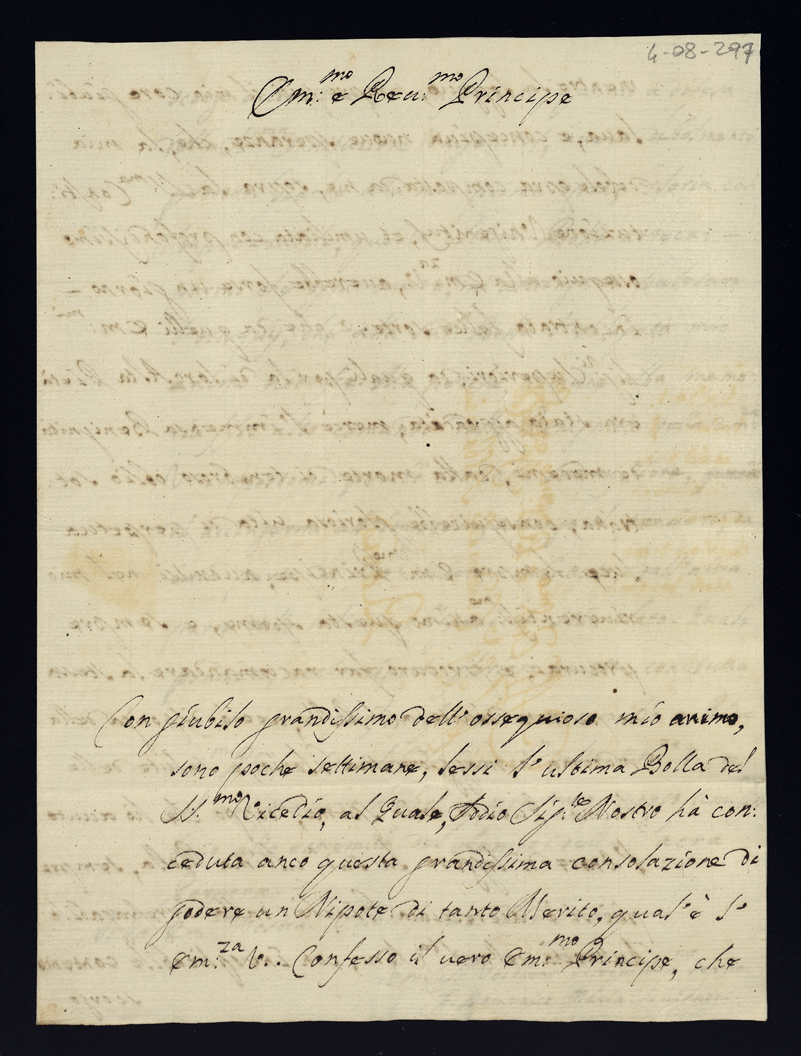 4-08-297
Em:mo e Reu:mo Principe
Con giubilo grandissimo dell'ossequioso mio animo,
sono poche settimane, lessi l'ultima Bolla del
N.mo Vicedio, al quale, Iddio Sig:re Nostro hà con:
ceduta anco questa grandissima consolazione di
godere un Nipote di tanto Merito, qual'è l'
Em:za V.. Confesso il uero Em:mo Principe, che